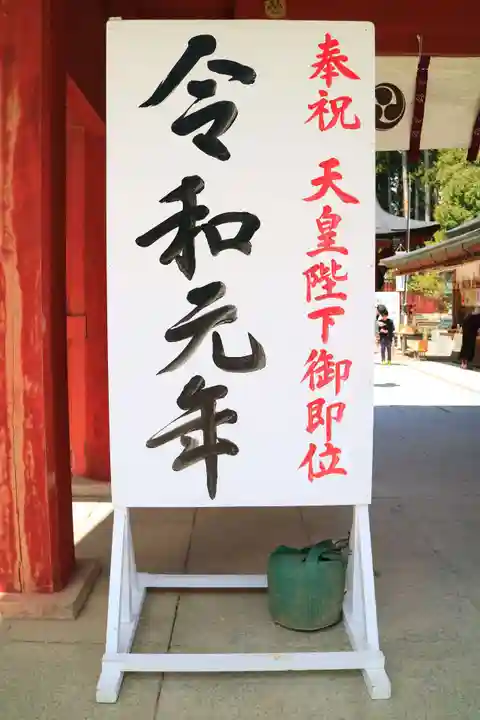 奉祝 天皇陛下御即位
令和元年